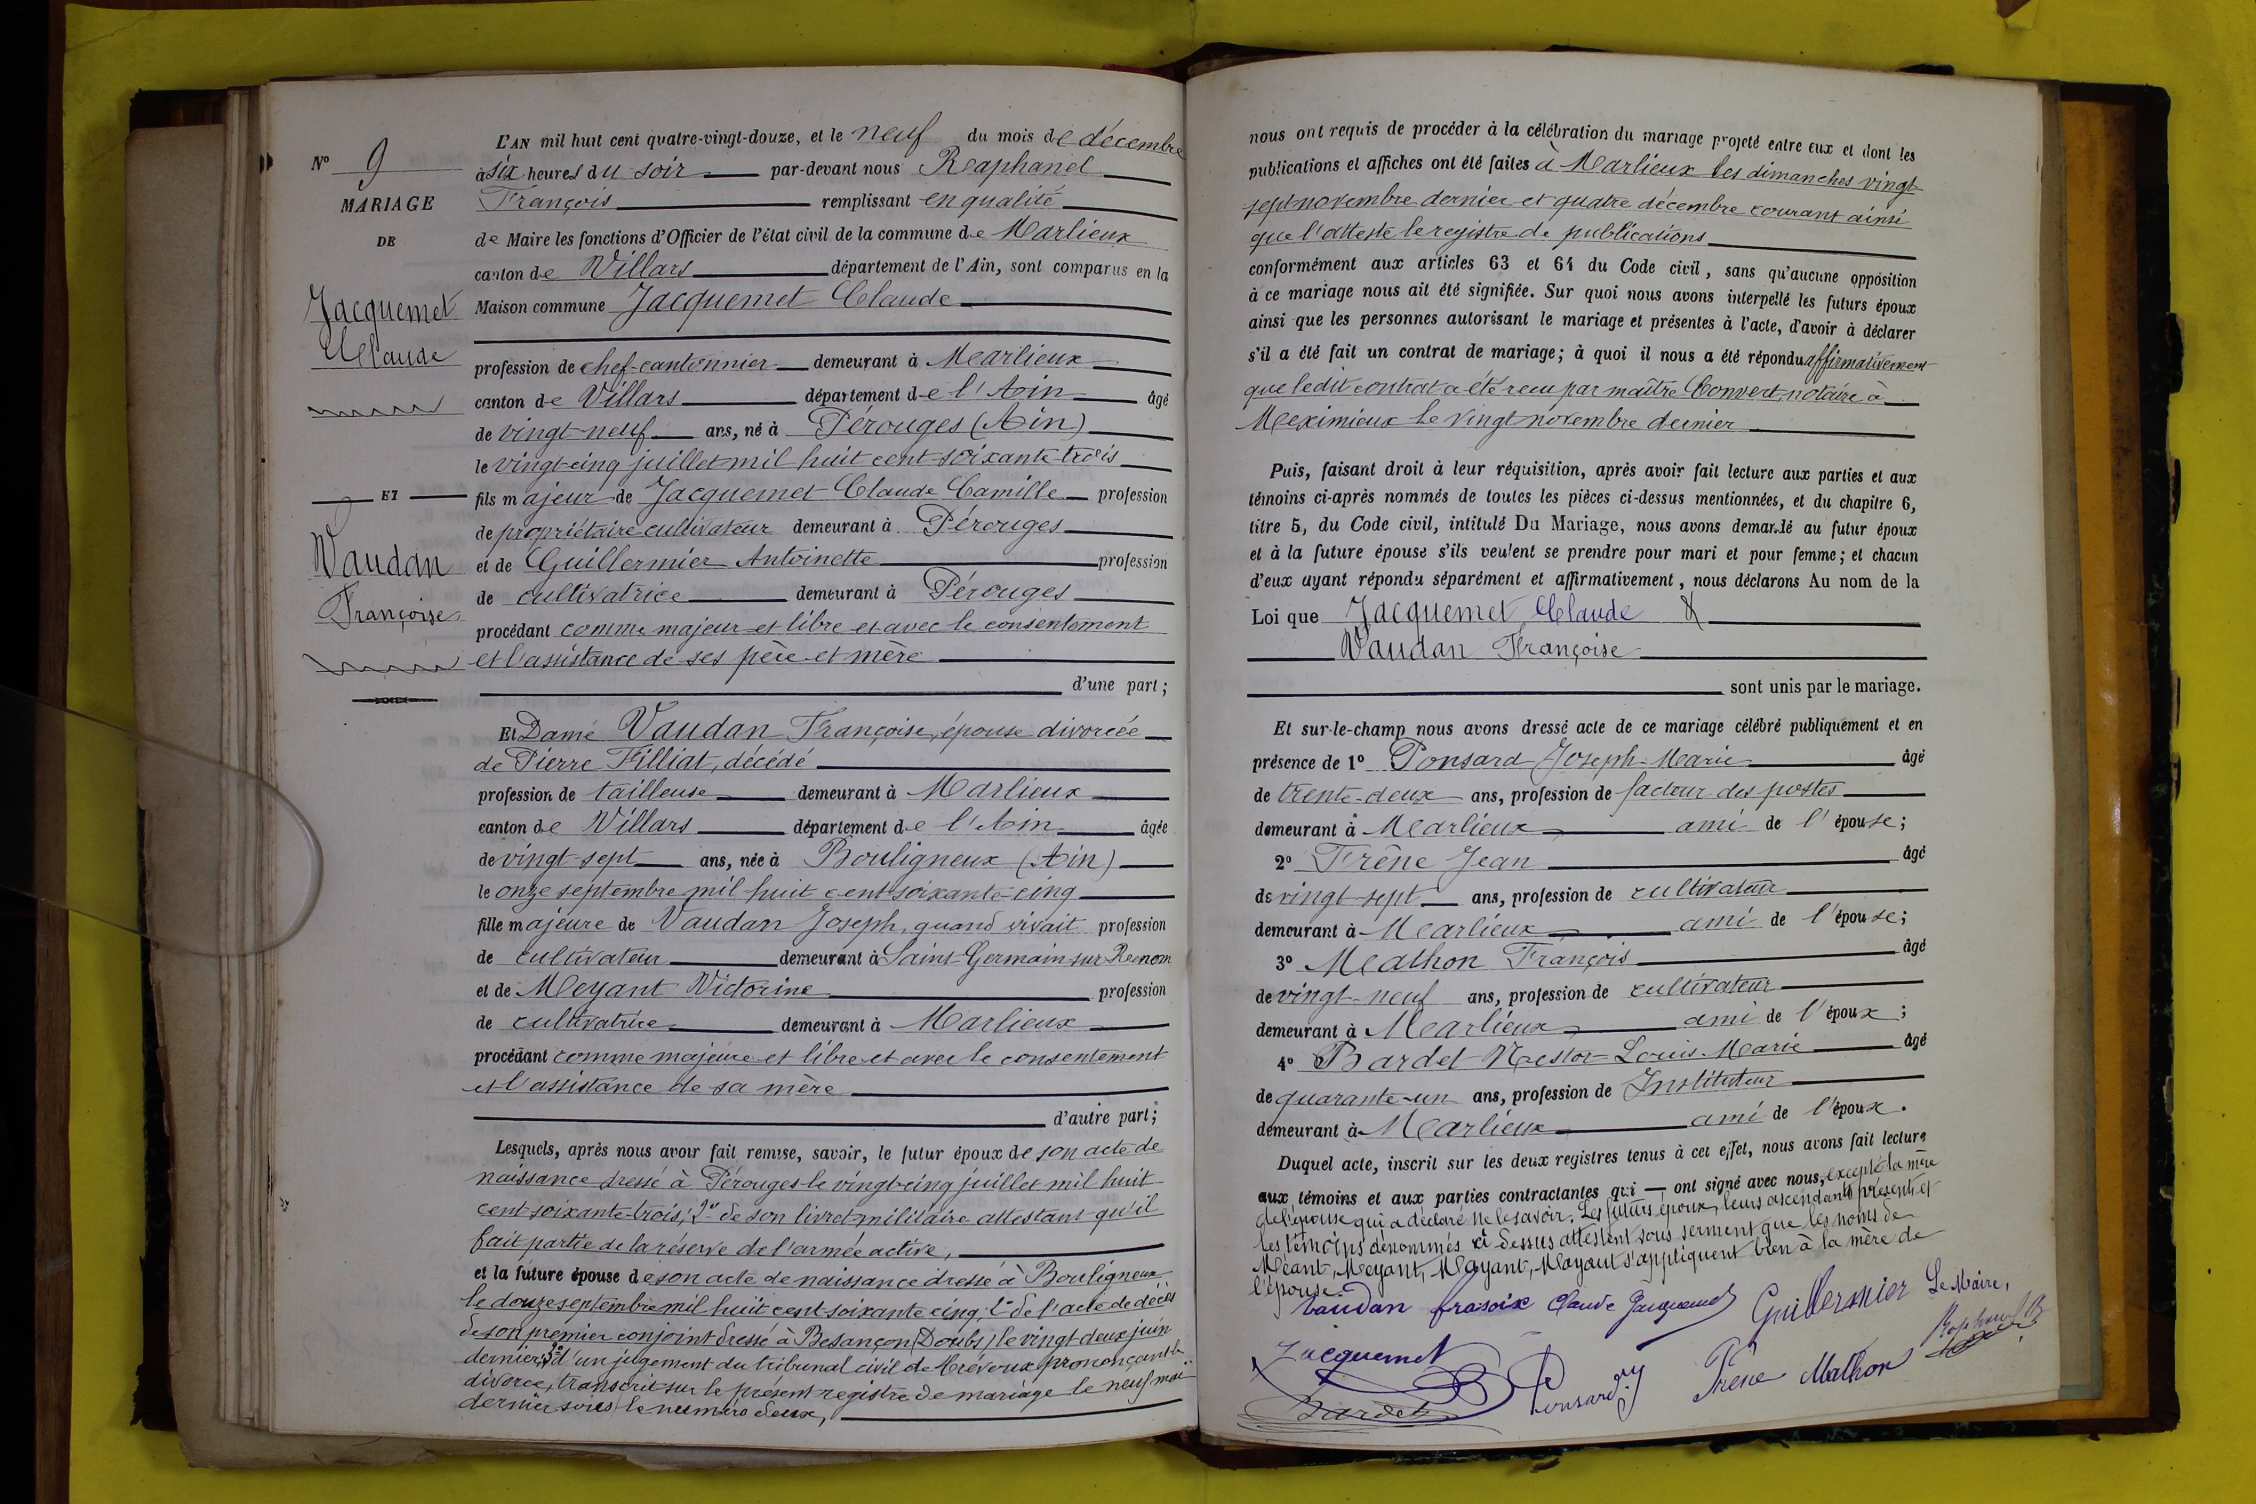 N° 9
MARIAGE
DE
Jacquemet
Claude
ET
Vaudan
Françoise
L'AN mil huit cent quatre-vingt-douze, et le neuf du mois de décembre
à six heures du soir par-devant nous Reaphanel
François remplissant en qualité
de Maire les fonctions d'Officier de l'état civil de la commune de Marlieux
canton de Villars département de l'Ain, sont comparus en la
Maison commune Jacquemet Claude
profession de chef-cantonnier demeurant à Marlieux
canton de Villars département de l'Ain âgé
de vingt-neuf ans, né à Pérouges (Ain)
le vingt-cinq juillet mil huit cent soixante-trois
fils majeur de Jacquemet Claude Camille profession
de propriétaire cultivateur demeurant à Pérouges
et de Guillermier Antoinette profession
de cultivatrice demeurant à Pérouges
procédant comme majeur et libre et avec le consentement
et l'assistance de ses père et mère
d'une part;
Et Dame Vaudan Françoise, épouse divorcée
de Pierre Filliat, décédé
profession de tailleuse demeurant à Marlieux
canton de Villars département de l'Ain âgée
de vingt-sept ans, née à Bouligneux (Ain)
le onze septembre mil huit cent soixante-cinq
fille majeure de Vaudan Joseph, quand vivait profession
de cultivateur demeurant à Saint-Germain-sur-Renom
et de Meyant Victorine profession
de cultivatrice demeurant à Marlieux
procédant comme majeure et libre et avec le consentement
et l'assistance de sa mère
d'autre part;
Lesquels, après nous avoir fait remise, savoir, le futur époux de son acte de
naissance dressé à Pérouges le vingt-cinq juillet mil huit
cent soixante-trois; 2° de son livret militaire attestant qu'il
fait partie de la réserve de l'armée active,
et la future épouse de son acte de naissance dressé à Bouligneux
le douze septembre mil huit cent soixante cinq, 2° de l'acte de décès
de son premier conjoint dressé à Besançon (Doubs) le vingt deux juin
dernier, 3° d'un jugement du tribunal civil de Trévoux prononçant le
divorce, transcrit sur le présent registre de mariage le neuf mai
dernier sous le numéro deux,
nous ont requis de procéder à la célébration du mariage projeté entre eux et dont les
publications et affiches ont été faites à Marlieux les dimanches vingt
sept novembre dernier et quatre décembre courant ainsi
que l'atteste le registre de publications
conformément aux articles 63 et 64 du Code civil, sans qu'aucune opposition
à ce mariage nous ait été signifiée. Sur quoi nous avons interpellé les futurs époux
ainsi que les personnes autorisant le mariage et présentes à l'acte, d'avoir à déclarer
s'il a été fait un contrat de mariage; à quoi il nous a été répondu affirmativement
que ledit contrat a été reçu par maître Convert, notaire à
Meximieux le vingt novembre dernier
Puis, faisant droit à leur réquisition, après avoir fait lecture aux parties et aux
témoins ci-après nommés de toutes les pièces ci-dessus mentionnées, et du chapitre 6,
titre 5, du Code civil, intitulé Du Mariage, nous avons demandé au futur époux
et à la future épouse s'ils veulent se prendre pour mari et pour femme; et chacun
d'eux ayant répondu séparément et affirmativement, nous déclarons Au nom de la
Loi que Jacquemet Claude &
Vaudan Françoise
sont unis par le mariage.
Et sur-le-champ nous avons dressé acte de ce mariage célébré publiquement et en
présence de 1° Ponsard Joseph-Marie âgé
de trente-deux ans, profession de facteur des postes
demeurant à Marlieux ami de l'épouse;
2° Frêne Jean âgé
de vingt-sept ans, profession de cultivateur
demeurant à Marlieux ami de l'épouse;
3° Mathon François âgé
de vingt-neuf ans, profession de cultivateur
demeurant à Marlieux ami de l'époux;
4° Bardet Nestor-Louis-Marie âgé
de quarante-un ans, profession de Instituteur
demeurant à Marlieux ami de l'époux.
Duquel acte, inscrit sur les deux registres tenus à cet effet, nous avons fait lecture
aux témoins et aux parties contractantes qui ont signé avec nous, excepté la mère
de l'épouse qui a déclaré ne le savoir. Les futurs époux, leurs ascendants présents et
les témoins dénommés ci dessus attestent sous serment que les noms de
Méant, Meyant, Mayant, Mayaut s'appliquent bien à la mère de
l'épouse.
Vaudan frasoise Claude Jacquemet Guillermier Le Maire,
Jacquemet Ponsard Frene Mathon Raphanel
Bardet